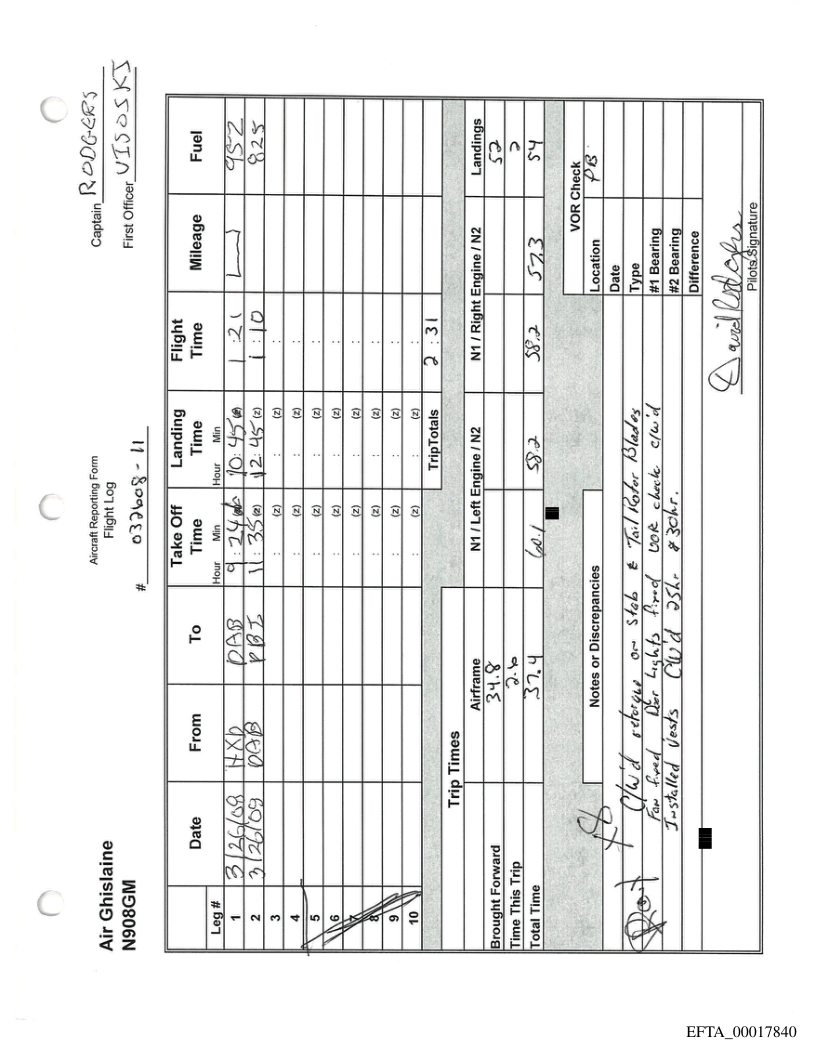 Air Ghislaine
N908GM
Aircraft Reporting Form
Flight Log
# 032608-11
Captain RODGERS
First Officer VISOSKI
Leg # Date From To Take Off Time Landing Time Flight Time Mileage Fuel
Hour Min Hour Min
1 3/26/08 HXD DAB 9:24 10:45 1:21 952
2 3/26/09 DAB PBI 11:35 (z) 12:45 (z) 1:10 825
3 : (z) : (z) :
4 : (z) : (z) :
5 : (z) : (z) :
6 : (z) : (z) :
7 : (z) : (z) :
8 : (z) : (z) :
9 : (z) : (z) :
10 : (z) : (z) :
TripTotals 2:31
Trip Times
Airframe N1 / Left Engine / N2 N1 / Right Engine / N2 Landings
Brought Forward 34.8 52
Time This Trip 2.6 2
Total Time 37.4 60.1 58.2 58.2 57.3 54
Notes or Discrepancies
VOR Check
Location PB
Date
Type
#1 Bearing
#2 Bearing
Difference
C/W'd retorque on Stab & Tail Rotor Blades
Fan fixed Door Lights fixed VOR check c/w'd
Installed Vests C/W'd 25hr & 30hr.
David Rodgers
Pilots Signature
EFTA_00017840